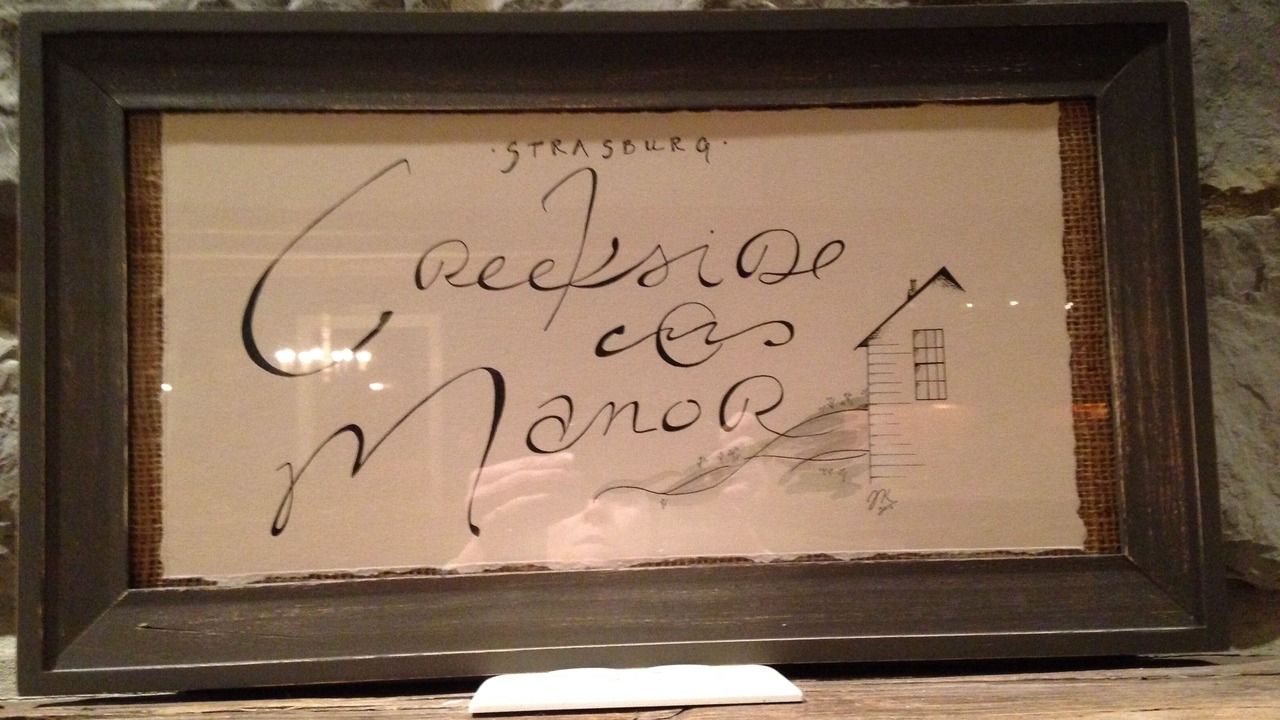 ·STRASBURG·
CReeksiDe
ManoR